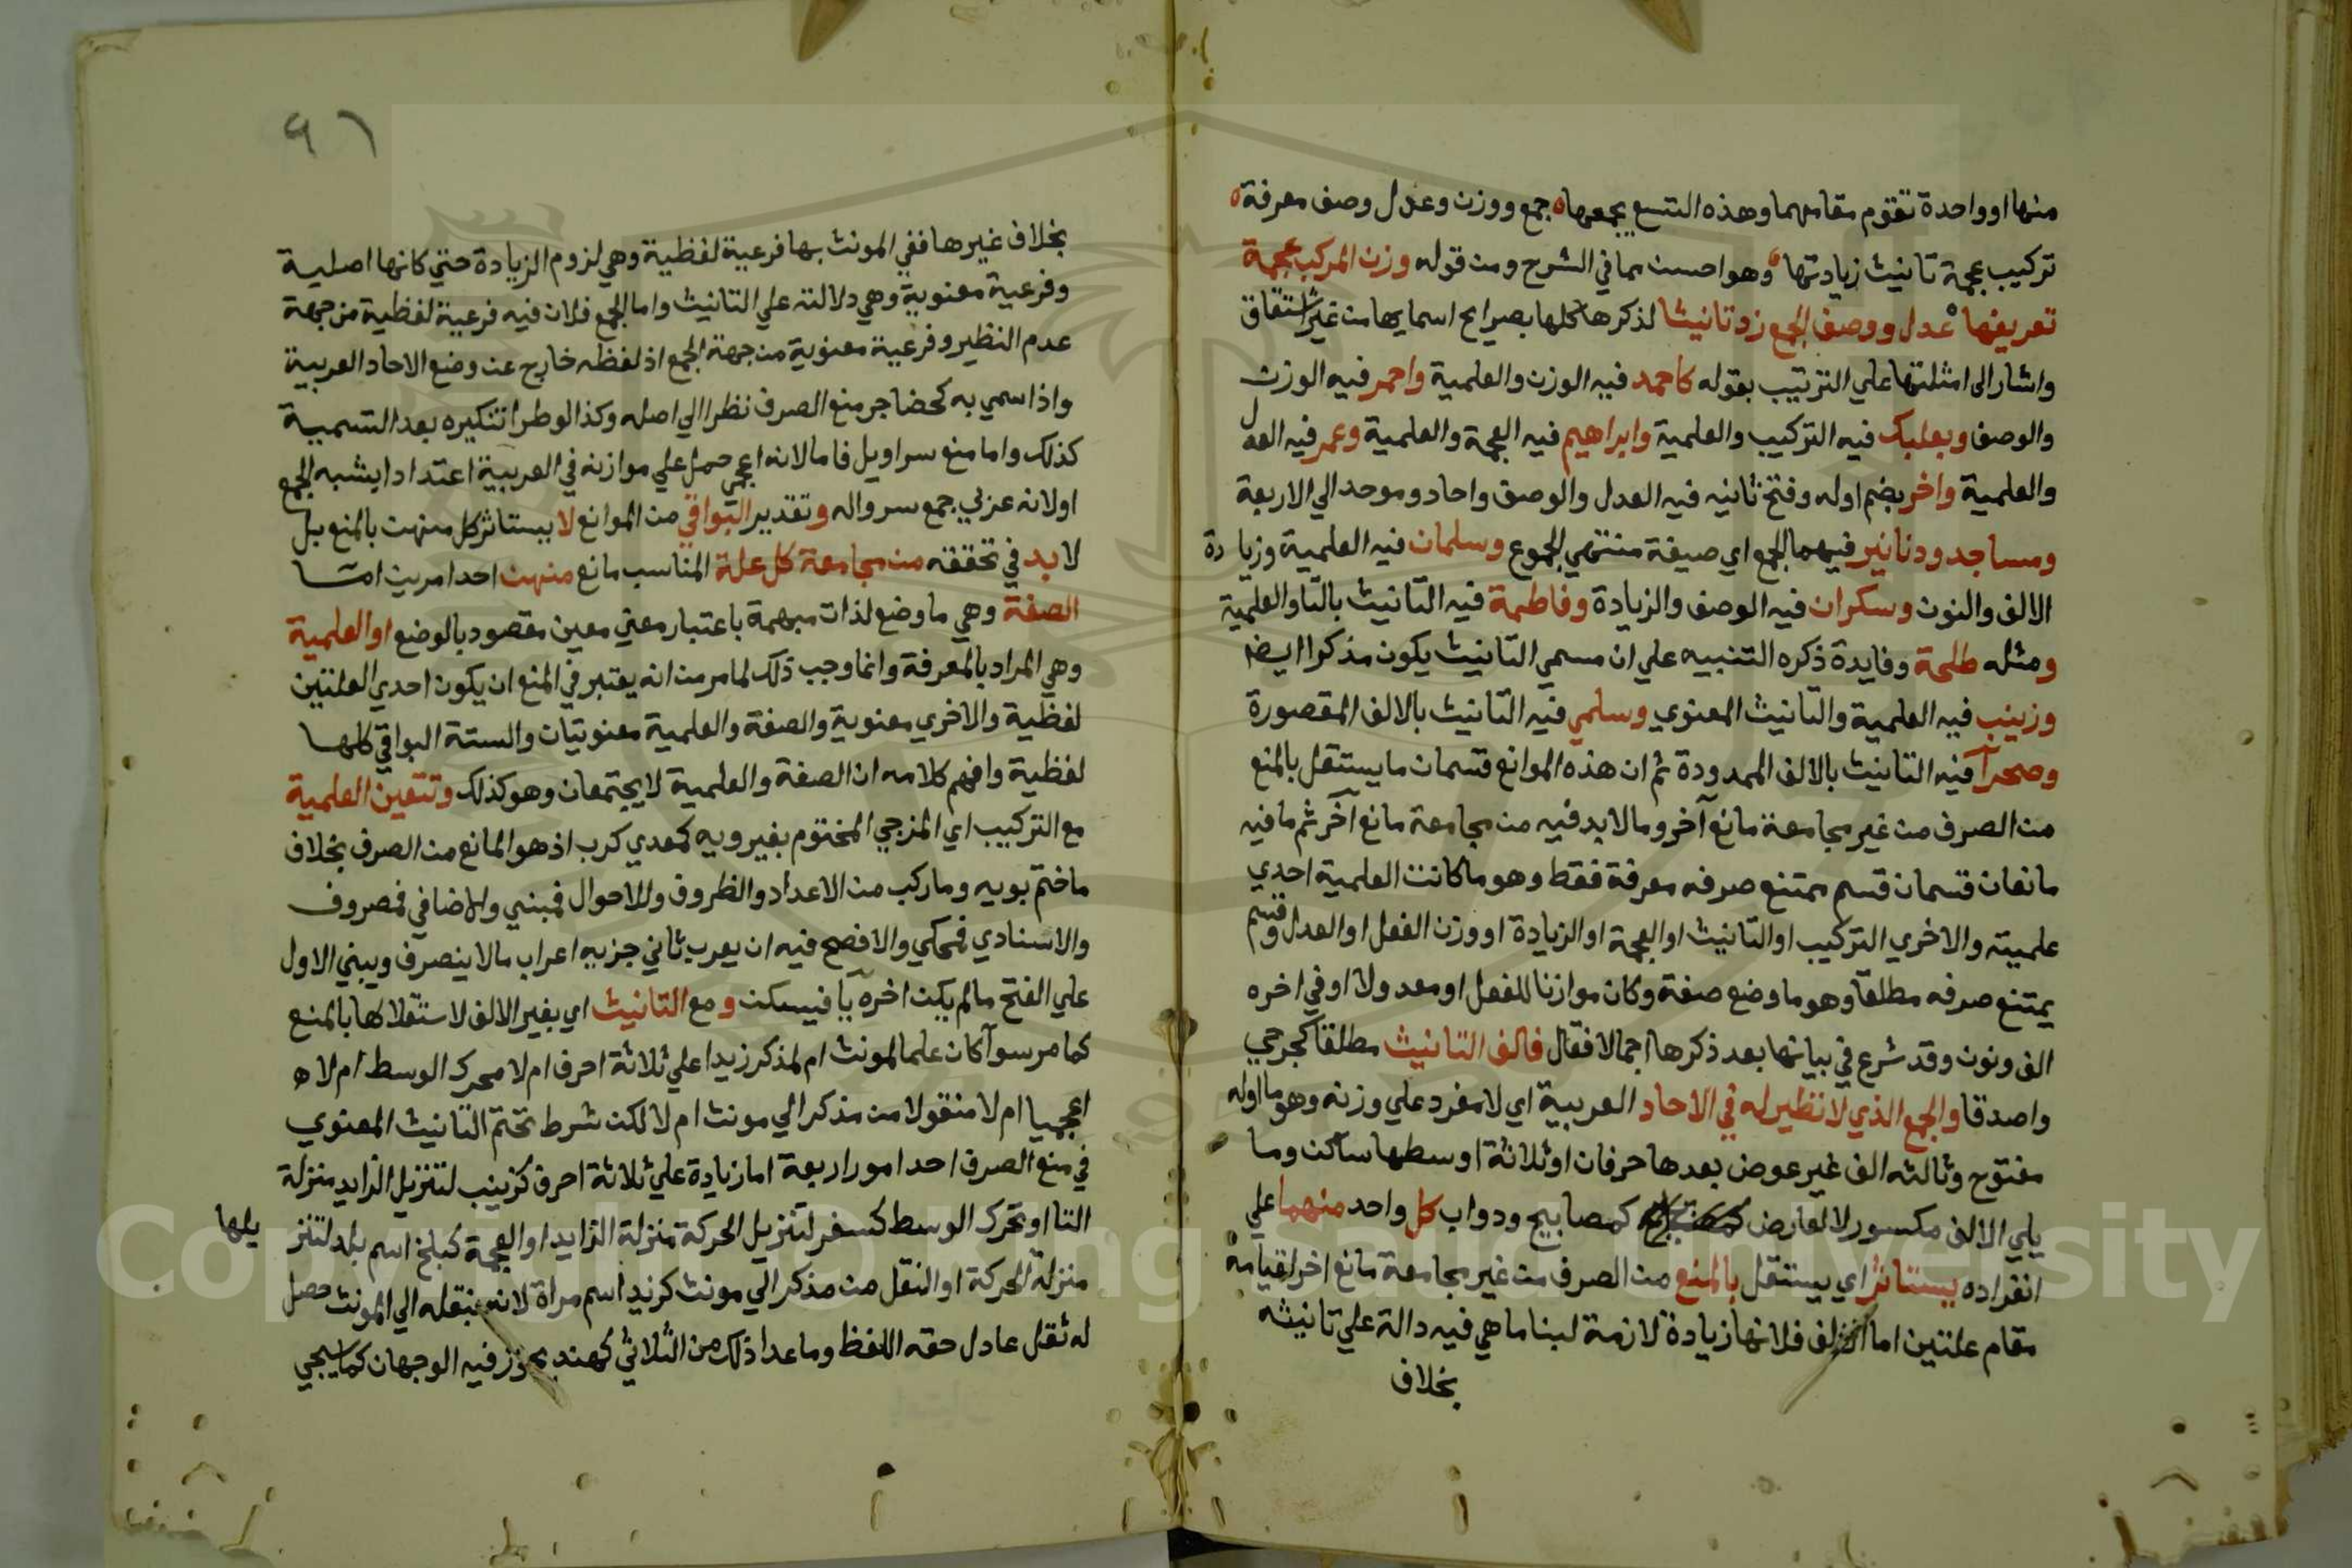 منها او واحدة تقوم مقامهما وهذه التسع يجمعها جمع ووزن وعدل وصف معرفة
تركيب عجمة تانيث زيادتها وهو احسن مما في الشرح ومن قوله وزن المركب عجمة
تعريفها عدل ووصف الجمع زد تانيثا لذكرها كلها بصرايح اسمايها من غير اشتقاق
واشار الى امثلتها علي الترتيب بقوله كاحمد فيه الوزن والعلمية واحمر فيه الوزن
والوصف وبعلبك فيه التركيب والعلمية وابراهيم فيه العجمة والعلمية وعمر فيه العدل
والعلمية واخر بضم اوله وفتح ثانيه فيه العدل والوصف واحاد وموحد الي الاربعة
ومساجد ودنانير فيهما الجمع اي صيغة منتهي الجموع وسلمان فيه العلمية وزيادة
الالف والنون وسكران فيه الوصف والزيادة وفاطمة فيه التانيث بالتا والعلمية
ومثله طلحة وفايدة ذكره التنبيه علي ان مسمي التانيث يكون مذكرا ايضا
وزينب فيه العلمية والتانيث المعنوي وسلمي فيه التانيث بالالف المقصورة
وصحرآ فيه التانيث بالالف الممدودة ثم ان هذه الموانع قسمان ما يستقل بالمنع
من الصرف من غير مجامعة مانع آخر وما لا بد فيه من مجامعة مانع آخر ثم ما فيه
مانعان قسمان قسم يمتنع صرفه معرفة فقط وهو ما كانت العلمية احدي
علميته والاخري التركيب او التانيث او العجمة او الزيادة او وزن الفعل او العدل وقسم
يمتنع صرفه مطلقا وهو ما وضع صفة وكان موازنا للفعل او معدولا او في اخره
الف ونون وقد شرع في بيانها بعد ذكرها اجمالا فقال فالف التانيث مطلقا كجرحي
واصدقا والجمع الذي لا نظير له في الاحاد العربية اي لا مفرد علي وزنه وهو ما اوله
مفتوح وثالثه الف غير عوض بعدها حرفان او ثلاثة اوسطها ساكن وما
يلي الالف مكسور لا لعارض كمصابيح ودواب كل واحد منهما علي
انفراده يستاثر اي يستقل بالمنع من الصرف من غير مجامعة مانع اخر لقيامه
مقام علتين اما الالف فلانها زيادة لازمة لبنا ما هي فيه دالة علي تانيثه
بخلاف
٩١
بخلاف غيرها ففي المونث بها فرعية لفظية وهي لزوم الزيادة حتي كانها اصلية
وفرعية معنوية وهي دلالته علي التانيث واما الجمع فلان فيه فرعية لفظية من جهة
عدم النظير وفرعية معنوية من جهة الجمع اذ لفظه خارج عن وضع الاحاد العربية
واذا سمي به كحضاجر منع الصرف نظرا الي اصله وكذا لو طرا تنكيره بعد التسمية
كذلك واما منع سراويل فاما لانه اعجمي حمل علي موازنه في العربية اعتدادا بشبه الجمع
اولانه عربي جمع سرواله وتقدير البواقي من الموانع لا يستاثر كل منهن بالمنع بل
لا بد في تحققه من مجامعة كل علة المناسب مانع منهن احد امرين اما
الصفة وهي ما وضع لذات مبهمة باعتبار معني معين مقصود بالوضع او العلمية
وهي المراد بالمعرفة وانما وجب ذلك لما مر من انه يعتبر في المنع ان يكون احدي العلتين
لفظية والاخري معنوية والصفة والعلمية معنويتان والستة البواقي كلها
لفظية وافهم كلامه ان الصفة والعلمية لا يجتمعان وهو كذلك وتتعين العلمية
مع التركيب اي المزجي المختوم بغير ويه كمعدي كرب اذ هو المانع من الصرف بخلاف
ما ختم بويه وما ركب من الاعداد والظروف والاحوال فمبني والاضافي فمصروف
والاسنادي فمحكي والافصح فيه ان يعرب ثاني جزيه اعراب ما لا ينصرف ويبني الاول
علي الفتح ما لم يكن اخره يآ فيسكن ومع التانيث اي بغير الالف لاستقلالها بالمنع
كما مر سوآ كان علما لمونث ام لمذكر زيدا علي ثلاثة احرف ام لا محرك الوسط ام لا ه
اعجميا ام لا منقولا من مذكر الي مونث ام لا لكن شرط تحتم التانيث المعنوي
في منع الصرف احد امور اربعة اما زيادة علي ثلاثة احرف كزينب لتنزيل الزايد منزلة
التا او تحرك الوسط كسفر لتنزيل الحركة منزلة الزايد او العجمة كبلخ اسم بلد لتنز يلها
منزلة الحركة او النقل من مذكر الي مونث كزيد اسم مراة لانه بنقله الي المونث حصل
له ثقل عادل حقه اللفظ وما عدا ذلك من الثلاثي كهند يجوز فيه الوجهان كما سيجي